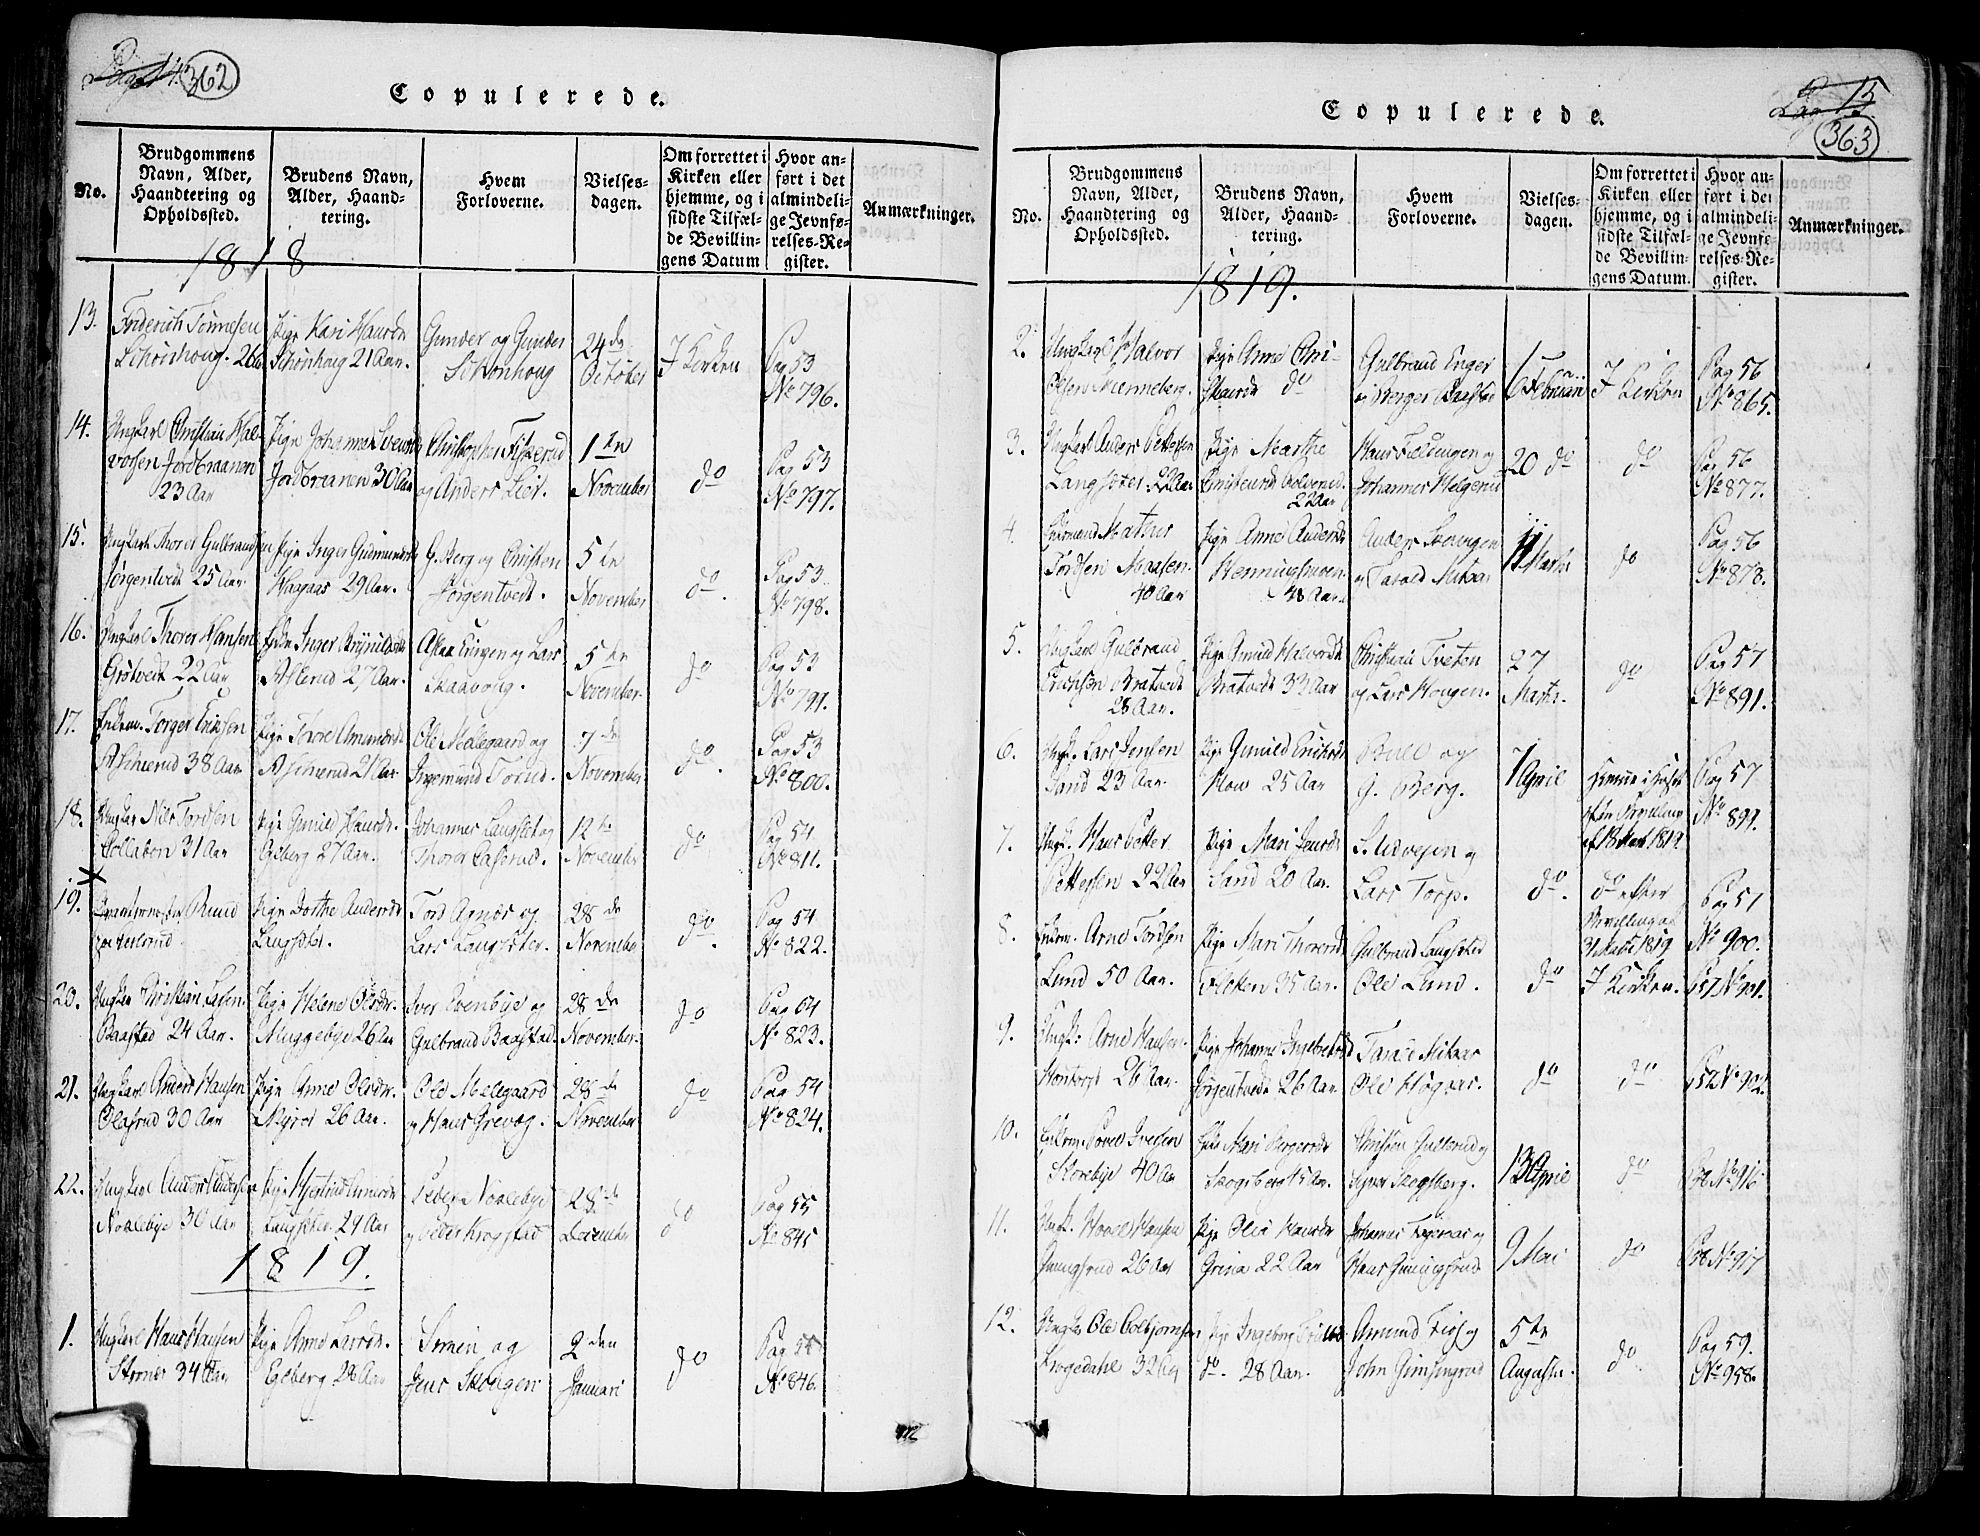 Pag 14.
362
Copulerede.
No.
Brudgommens
Navn, Alder,
Haandtering og
Opholdssted.
Brudens Navn,
Alder, Haand-
tering.
Hvem
Forloverne.
Vielses-
dagen.
Om forrettet i
Kirken eller
hjemme, og i
sidste Tilfæl-
de Bevillin-
gens Datum
Hvor an-
ført i det
almindeli-
ge Jevnfø-
relses-Re-
gister.
Anmærkninger.
1818
13.
Friderich Tønnesen
Schønhoug. 26
Pige Kari Haurdr
Schønhoug 21 Aar.
Gunder og Gunder
Schønhoug
24 de
October
I Kirken
Pag 53
No 796.
14.
Ungkarl Christian Hal-
vorsen Jordbraaten
23 Aar
Pige Johanne
Jordbraaten 30 Aar
Christopher
og Anders Lier.
1 ten
November
do
Pag 53
No 797.
15.
Ungkarl Thorer Gulbrandsen
Jørgentvedt 25 Aar.
Pige Inger Gudmundsdr
Haganas 29 Aar.
G. Berg og Christen
Jørgentvedt.
5 te
November
do.
Pag 53
No 798.
16.
Ungkarl Thorer Hansen
Grøtvedt 22 Aar
Enke Inger Brynildsdr
Asterud 27 Aar.
og Lars
Skaavoug.
5 te
November
do
Pag 53
No 799.
17.
Enkem. Torger Eriksen
38 Aar
Pige Thore Amundsdr
21 Aar
Ole Mellegaard og
Ingemund Torud.
7 de
November
do.
Pag 53
No 800.
18.
Ungkarl Nils Tordsen
Collabon 31 Aar
Pige Gunild Haurdr.
Egeberg 27 Aar.
Johannes Langset og
Thorer
12 te
November
do
Pag 54
No 811.
19.
Pige Dorthe Andersdr
Langseter.
Tord Aarnes og
Lars Langseter.
28 de
November
do.
Pag 54
No 822.
20.
Ungkarl Christian Larsen
Baastad 24 Aar.
Pige Helene Olsdr.
Muggebye 26 Aar
Iver Svenbye og
Gulbrand Baastad.
28 de
November
do
Pag 54
No 823.
21.
Ungkarl Anders Hansen
Olasrud 30 Aar
Pige Anne Olesdr.
Myrer 26 Aar.
Ole Mellegaard
og Hans Grevog.
28 de
November
do
Pag 54
No 824.
22.
Ungkarl Anders Andersen
Noallebye 30 Aar
Langseter. 29 Aar
Peder Noallebye
og Peder Krogstad
28 de
December
do
Pag 55
No 845
1819.
1.
Ungkarl Hans Hansen
34 Aar
Pige Anne Larsdr.
Egeberg 28 Aar
og
Jens Skougen
2 den
Januari
do
Pag 55
No 846.
Pag 15
363
Copulerede.
No.
Brudgommens
Navn, Alder,
Haandtering og
Opholdssted.
Brudens Navn,
Alder, Haand-
tering.
Hvem
Forloverne.
Vielses-
dagen.
Om forrettet i
Kirken eller
hjemme, og i
sidste Tilfæl-
de Bevillin-
gens Datum.
Hvor an-
ført i det
almindeli-
ge Jevnfø-
relses-Re-
gister.
Anmærkninger.
1819.
2.
Ungkarl Halvor
Olsen Menneberg.
Pige Anne
do
Gulbrand Enger
og Berger Baastad
Februar
I Kirken
Pag 56
No 865.
3.
Ungkarl Anders Pettersen
Langseter 22 Aar
Pige Marthe
22 Aar
Hans og
Johannes Helgerud
20 do
do
Pag 56
No 877.
4.
Enkemand Mathis
Tordsen Maasen.
40 Aar
Pige Anne Andersdr
Henningsmoen
48 Aar.
Anders Skougen
og
11 Marts
do
Pag 56
No 878.
5.
Ungkarl Gulbrand
Erichsen Bratvedt
28 Aar.
Pige Gunild Halvorsdr
Bratvedt 33 Aar
Christian Tveten
og Lars Hougen.
27
Marts.
do
Pag 57
No 891.
6.
Ungk. Lars Jensen
Sand 23 Aar.
Pige Gunild Erichsdr
25 Aar
Bull og
G. Berg.
7 April
Hjemme i Huset
efter Bevilling
af 18 Mart 1819
Pag 57
No 899.
7.
Ungk. Hans Petter
Pettersen 22 Aar
Pige Mari Jensdr
Sand 20 Aar.
og
Lars Torp.
do.
do efter
Bevilling af
31 Marts 1819
Pag 57
No 900.
8.
Enkem. Arne Tordsen
Lund 50 Aar.
Pige Mari Thorersdr
Floten 35 Aar.
Gulbrand Langseter
Ole Lund.
do
I Kirken.
P 57 No 901.
9.
Ungk: Arne Hansen
26 Aar.
Pige Johanne Ingebretsdr
Jørgentvedt 26 Aar.
Ole Hognas.
do
do
P 57 No 902.
10.
Enkem. Povel Iversen
Storebye 40 Aar
Enke Mari Bergersdr
Skogsberg 45 Aar.
Christen Gullerud og
Skogsberg.
13 April
do
No 916.
11.
Ungk. Povel Hansen
26 Aar
Pige Olea Haurdr
Grina 22 Aar
Johannes og
Hans
9 Mai
do
No 917
12.
Ungk. Ole Colbjørnsen
Krogedahl 32 Aar
Pige Ingeborg
do. 28 Aar.
Amund og
John
5 te
Augusti.
do
Pag 59.
No 958.